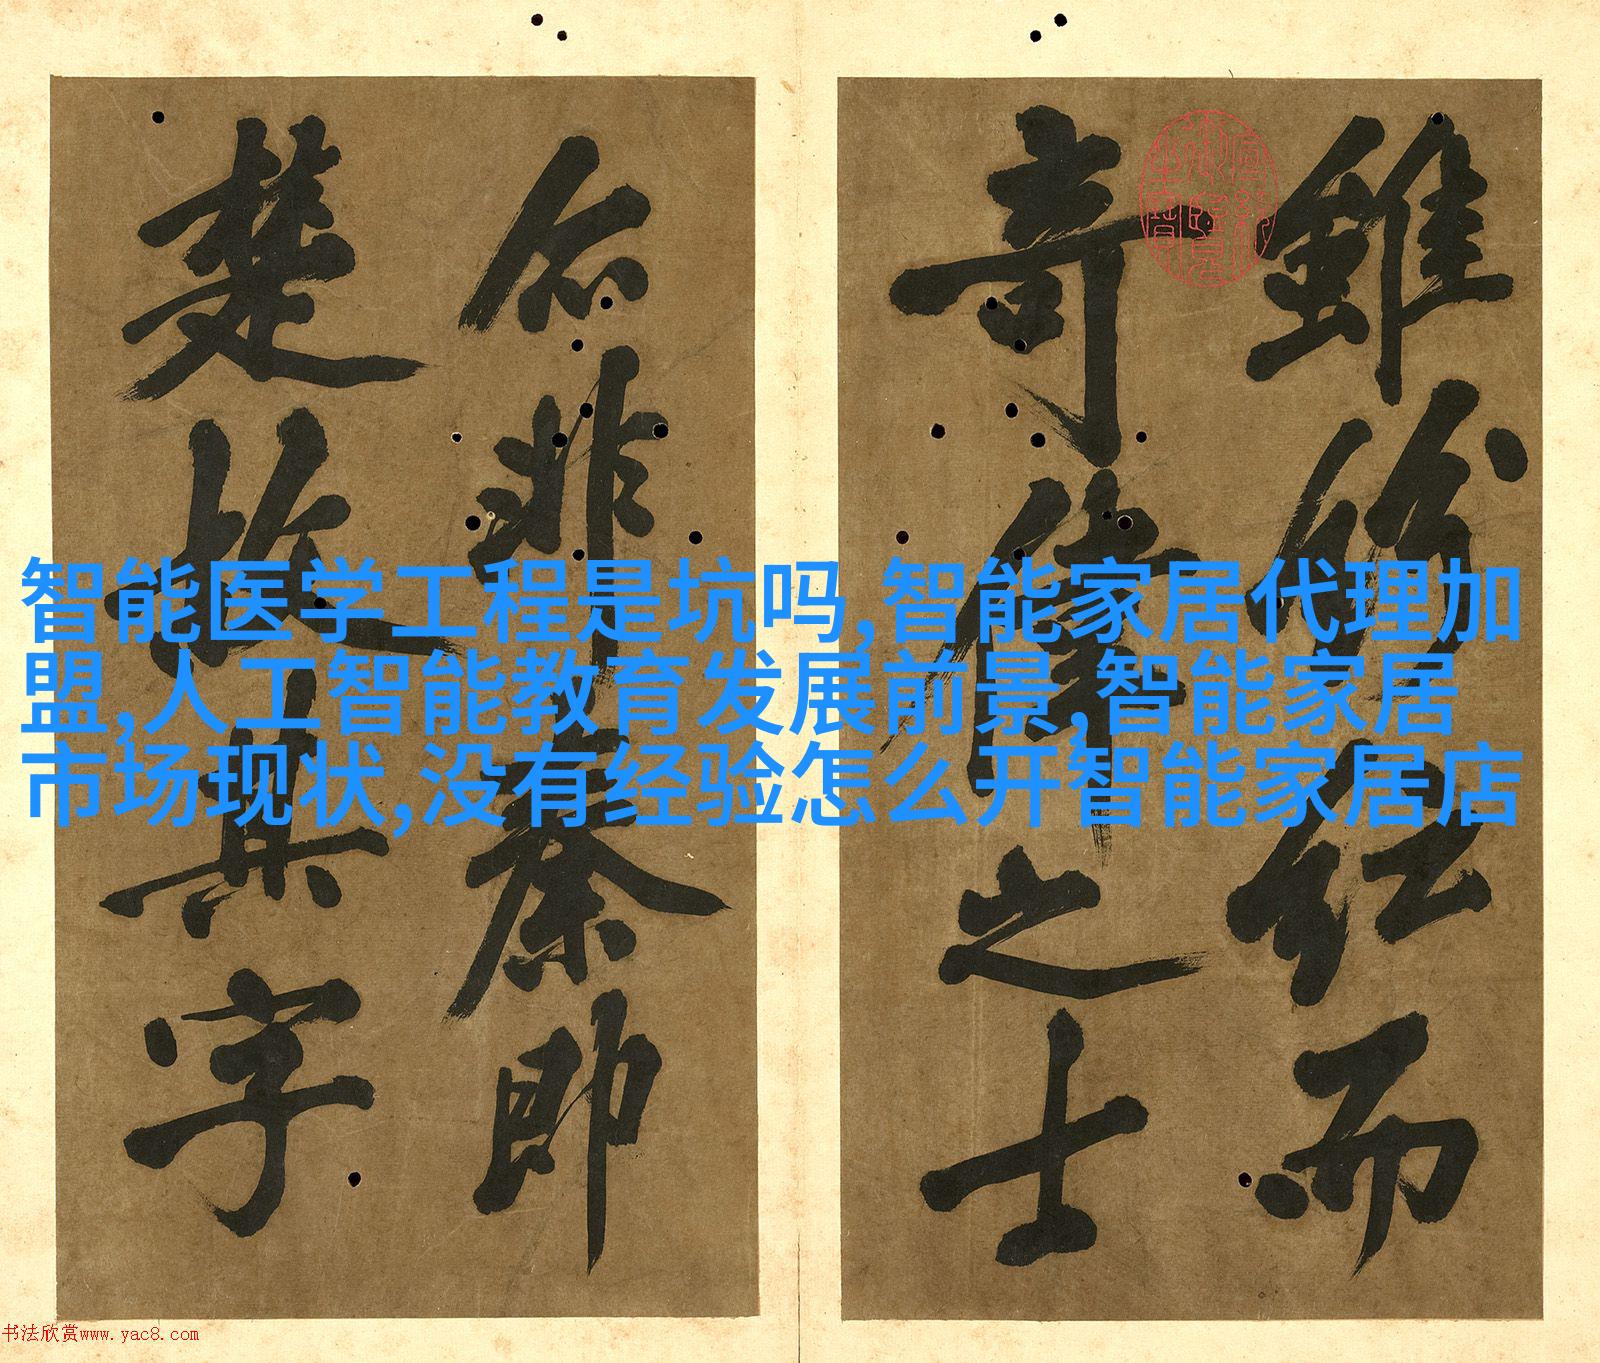 雖而
奇偉之士
非秦即
楚故其字
智能医学工程是坑吗,智能家居代理加
盟,人工智能教育发展前景,智能家居
市场现状,没有经验怎么开智能家居店
书法欣赏www.yac8.com